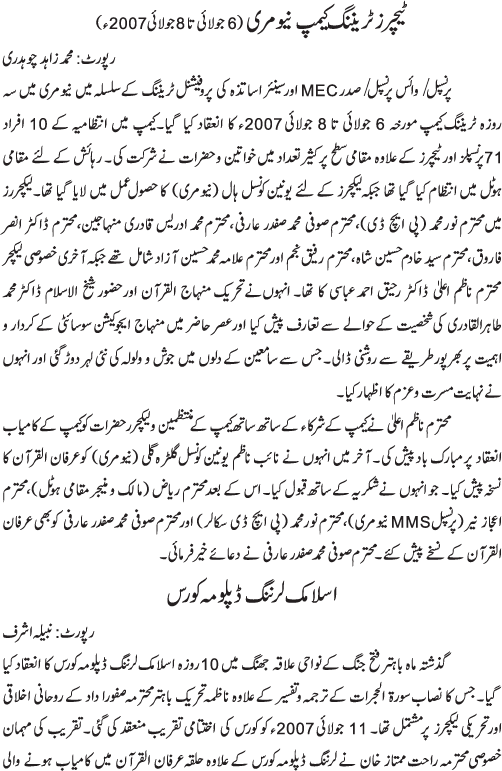 ٹیچرز ٹریننگ کیمپ نیو مری (6 جولائی تا 8 جولائی 2007ء)
رپورٹ: محمد زاہد چوہدری
پرنسپل/ وائس پرنسپل/ صدر MEC اور سینئر اساتذہ کی پروفیشنل ٹریننگ کے سلسلہ میں نیو مری میں سہ
روزہ ٹریننگ کیمپ مورخہ 6 جولائی تا 8 جولائی 2007ء کا انعقاد کیا گیا۔ کیمپ میں انتظامیہ کے 10 افراد
71 پرنسپلز اور ٹیچرز کے علاوہ مقامی سطح پر کثیر تعداد میں خواتین و حضرات نے شرکت کی۔ رہائش کے لئے مقامی
ہوٹل میں انتظام کیا گیا تھا جبکہ لیکچرز کے لئے یونین کونسل ہال (نیو مری) کا حصول عمل میں لایا گیا تھا۔ لیکچررز
میں محترم نور محمد (پی ایچ ڈی)، محترم صوفی محمد صفدر عارفی، محترم محمد ادریس قادری منہاجین، محترم ڈاکٹر انصر
فاروق، محترم سید خادم حسین شاہ، محترم رفیق نجم اور محترم علامہ محمد حسین آزاد شامل تھے جبکہ آخری خصوصی لیکچر
محترم ناظم اعلیٰ ڈاکٹر رحیق احمد عباسی کا تھا۔ انہوں نے تحریک منہاج القرآن اور حضور شیخ الاسلام ڈاکٹر محمد
طاہرالقادری کی شخصیت کے حوالے سے تعارف پیش کیا اور عصر حاضر میں منہاج ایجوکیشن سوسائٹی کے کردار و
اہمیت پر بھرپور طریقے سے روشنی ڈالی۔ جس سے سامعین کے دلوں میں جوش و ولولہ کی نئی لہر دوڑ گئی اور انہوں
نے نہایت مسرت و عزم کا اظہار کیا۔
محترم ناظم اعلیٰ نے کیمپ کے شرکاء کے ساتھ ساتھ کیمپ کے منتظمین و لیکچرر حضرات کو کیمپ کے کامیاب
انعقاد پر مبارک باد پیش کی۔ آخر میں انہوں نے نائب ناظم یونین کونسل گلہڑہ گلی (نیو مری) کو عرفان القرآن کا
نسخہ پیش کیا۔ جو انہوں نے شکریہ کے ساتھ قبول کیا۔ اس کے بعد محترم ریاض (مالک و منیجر مقامی ہوٹل)، محترم
اعجاز نیر (پرنسپل MMS نیو مری)، محترم نور محمد (پی ایچ ڈی سکالر) اور محترم صوفی محمد صفدر عارفی کو بھی عرفان
القرآن کے نسخے پیش کئے۔ محترم صوفی محمد صفدر عارفی نے دعائے خیر فرمائی۔
اسلامک لرننگ ڈپلومہ کورس
رپورٹ: نبیلہ اشرف
گذشتہ ماہ باہتر فتح جنگ کے نواحی علاقہ جھنگ میں 10 روزہ اسلامک لرننگ ڈپلومہ کورس کا انعقاد کیا
گیا۔ جس کا نصاب سورۃ الحجرات کے ترجمہ و تفسیر کے علاوہ ناظمہ تحریک باہتر محترمہ صفورا داد کے روحانی اخلاقی
اور تحریکی لیکچرز پر مشتمل تھا۔ 11 جولائی 2007ء کو کورس کی اختتامی تقریب منعقد کی گئی۔ تقریب کی مہمان
خصوصی محترمہ راحت ممتاز خان نے لرننگ ڈپلومہ کورس کے علاوہ حلقہ عرفان القرآن میں کامیاب ہونے والی